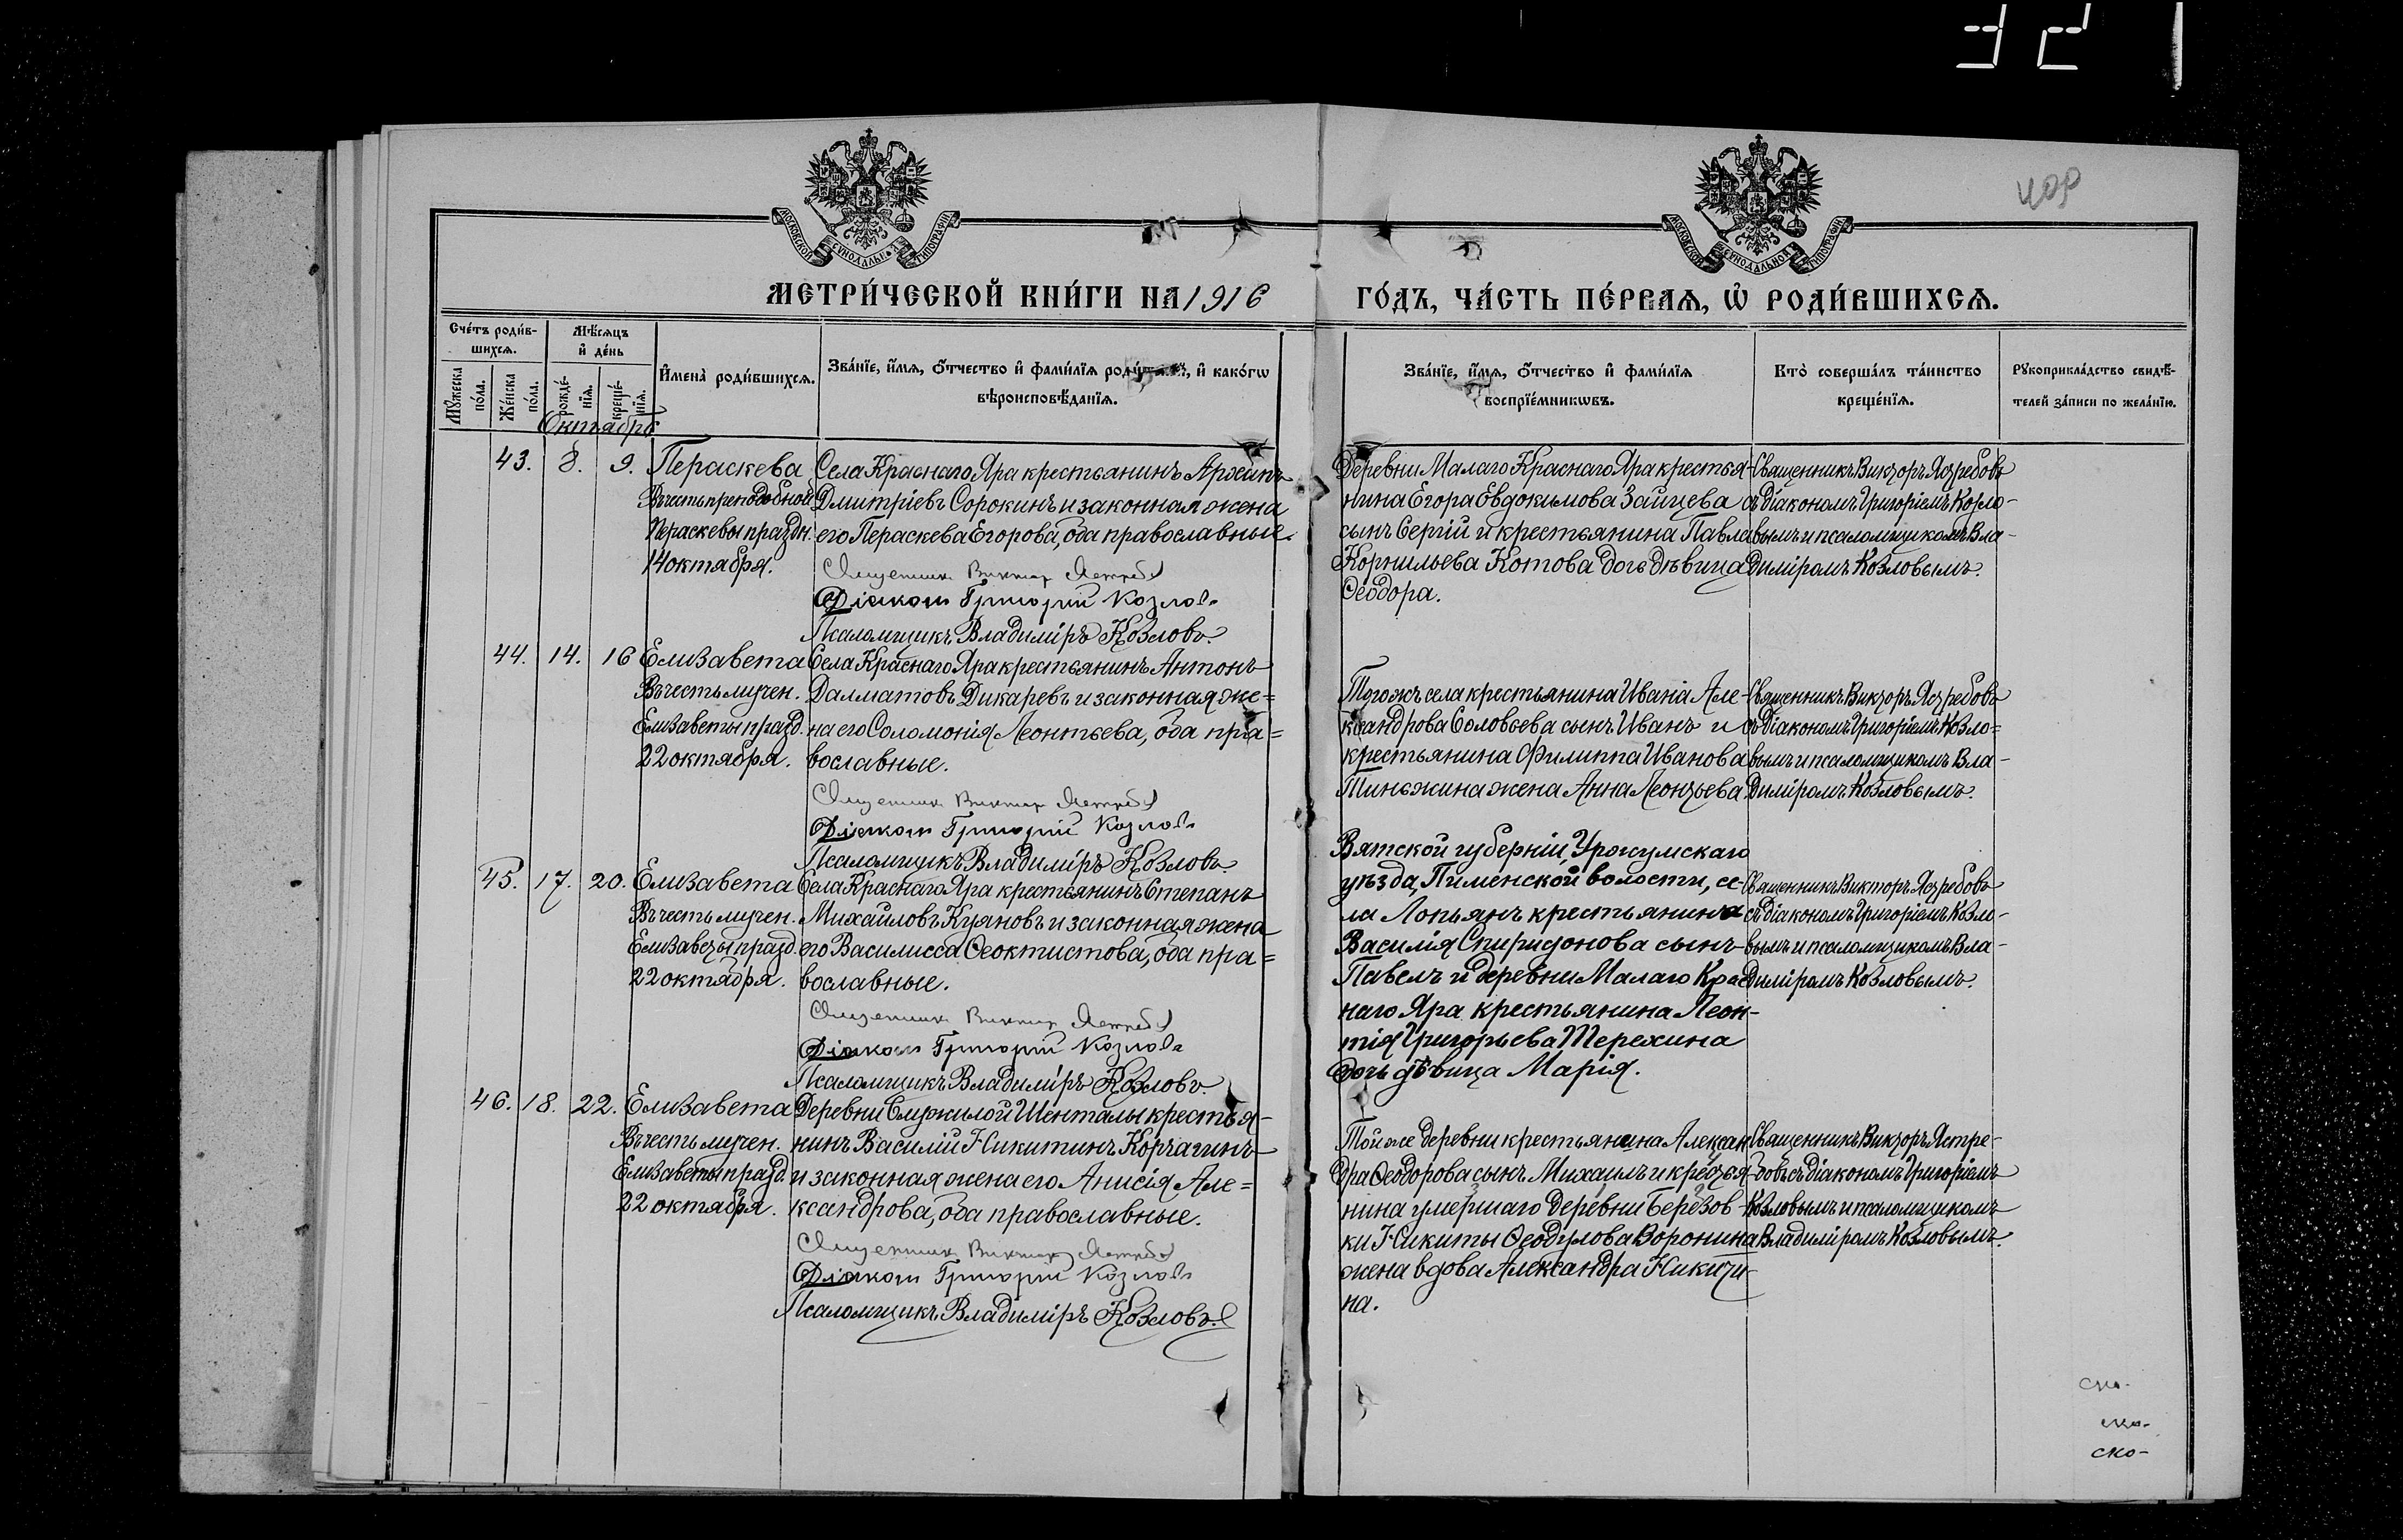 МОСКОВСКОЙ СѴНОДАЛЬНОЙ ТИПОГРАФІИ
МОСКОВСКОЙ СѴНОДАЛЬНОЙ ТИПОГРАФІИ
МЕТРИ́ЧЕСКОЙ КНИ́ГИ НА 1916
ГО́ДЪ, ЧА́СТЬ ПЕ́РВАѦ, Ѡ҆ РОДИ́ВШИХСѦ.
Сче́тъ роди́в-
шихсѧ.
Мѣ́сѧцъ
и҆ де́нь
Мꙋ́жеска
по́ла.
Же́нска
по́ла.
рожде́-
нїѧ.
креще́-
нїѧ.
И҆мена̀ роди́вшихсѧ.
Зва́нїе, и҆́мѧ, ѻ҆́тчество и҆ фами́лїѧ роди́телей, и҆ како́гѡ
вѣроисповѣ́данїѧ.
Зва́нїе, и҆́мѧ, ѻ҆́тчество и҆ фами́лїѧ
воспрїе́мникѡвъ.
Кто̀ соверша́лъ та́инство
креще́нїѧ.
Рꙋкоприкла́дство свидѣ́-
телей за́писи по жела́нїю.
Октябрь
43. 8. 9. Пераскева
Въ честь преподобной
Пераскевы праздн.
14 октября.
Села Краснаго Яра крестьянинъ Архипъ
Дмитріевъ Сорокинъ и законная жена
его Пераскева Егорова, оба православные.
Священникъ Викторъ Ястребовъ
Діаконъ Григорій Козловъ
Псаломщикъ Владиміръ Козловъ.
Деревни Малаго Краснаго Яра крестья-
нина Егора Евдокимова Зайцева
сынъ Сергій и крестьянина Павла
Корнильева Котова дочь дѣвица
Ѳеодора.
Священникъ Викторъ Ястребовъ
съ діакономъ Григоріемъ Козло-
вымъ и псаломщикомъ Вла-
диміромъ Козловымъ.
44. 14. 16 Елизавета
Въ честь мучен.
Елизаветы празд.
22 октября.
Села Краснаго Яра крестьянинъ Антонъ
Далматовъ Дикаревъ и законная же=
на его Соломонія Леонтьева, оба пра=
вославные.
Священникъ Викторъ Ястребовъ
Діаконъ Григорій Козловъ
Псаломщикъ Владиміръ Козловъ.
Тогожъ села крестьянина Ивана Але-
ксандрова Соловьева сынъ Иванъ и
крестьянина Филиппа Иванова
Тиньжина жена Анна Леонтьева
Священникъ Викторъ Ястребовъ
съ діакономъ Григоріемъ Козло=
вымъ и псаломщикомъ Вла-
диміромъ Козловымъ.
45. 17. 20. Елизавета
Въ честь мучен.
Елизаветы празд.
22 октября.
Села Краснаго Яра крестьянинъ Степанъ
Михайловъ Куяновъ и законная жена
его Василисса Ѳеоктистова, оба пра=
вославные.
Священникъ Викторъ Ястребовъ
Діаконъ Григорій Козловъ
Псаломщикъ Владиміръ Козловъ.
Вятской губерніи, Уржумскаго
уѣзда, Пименской волости, се-
ла Лопьянъ крестьянина
Василія Спиридонова сынъ
Павелъ и деревни Малаго Крас
наго Яра крестьянина Леон-
тія Григорьева Терехина
дочь дѣвица Марія.
Священникъ Викторъ Ястребовъ
съ діакономъ Григоріемъ Козло-
вымъ и псаломщикомъ Вла-
диміромъ Козловымъ.
46. 18. 22. Елизавета
Въ честь мучен.
Елизаветы празд.
22 октября.
Деревни Служилой Шенталы крестья-
нинъ Василій Никитинъ Корчагинъ
и законная жена его Анисія Але=
ксандрова, оба православные.
Священникъ Викторъ Ястребовъ
Діаконъ Григорій Козловъ
Псаломщикъ Владиміръ Козловъ.
Той же деревни крестьянина Алексан
дра Ѳеодорова сынъ Михаилъ и крестья-
нина умершаго деревни Березов-
ки Никиты Ѳеодулова Воронина
жена вдова Александра Никити-
на.
Священникъ Викторъ Ястре-
бовъ съ діакономъ Григоріемъ
Козловымъ и псаломщикомъ
Владиміромъ Козловымъ.
ско-
ско-
ско-